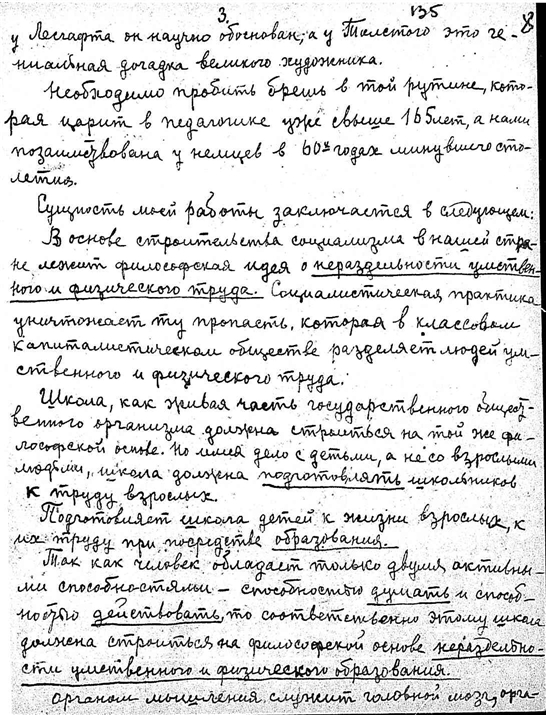 3.
135
8
у Лесгафта он научно обоснован, а у Толстого это ге-
ниальная догадка великого художника.
Необходимо пробить брешь в той рутине, кото-
рая царит в педагогике уже свыше 165 лет, а нами
позаимствована у немцев в 60х годах минувшего сто-
летия.
Сущность моей работы заключается в следующем:
В основе строительства социализма в нашей стра-
не лежит философская идея о нераздельности умствен-
ного и физического труда. Социалистическая практика
уничтожает ту пропасть, которая в классовом
капиталистическом обществе разделяет людей ум-
ственного и физического труда.
Школа, как живая часть государственного общест-
венного организма должна строиться на той же фи-
лософской основе. Но имея дело с детьми, а не со взрослыми
людьми, школа должна подготовлять школьников
к труду взрослых.
Подготовляет школа детей к жизни взрослых, к
их труду при посредстве образования.
Так как человек обладает только двумя активны-
ми способностями – способностью думать и способ-
ностью действовать, то соответственно этому школа
должна строиться на философской основе нераздельно-
сти умственного и физического образования.
Органом мышления служит головной мозг, орга-